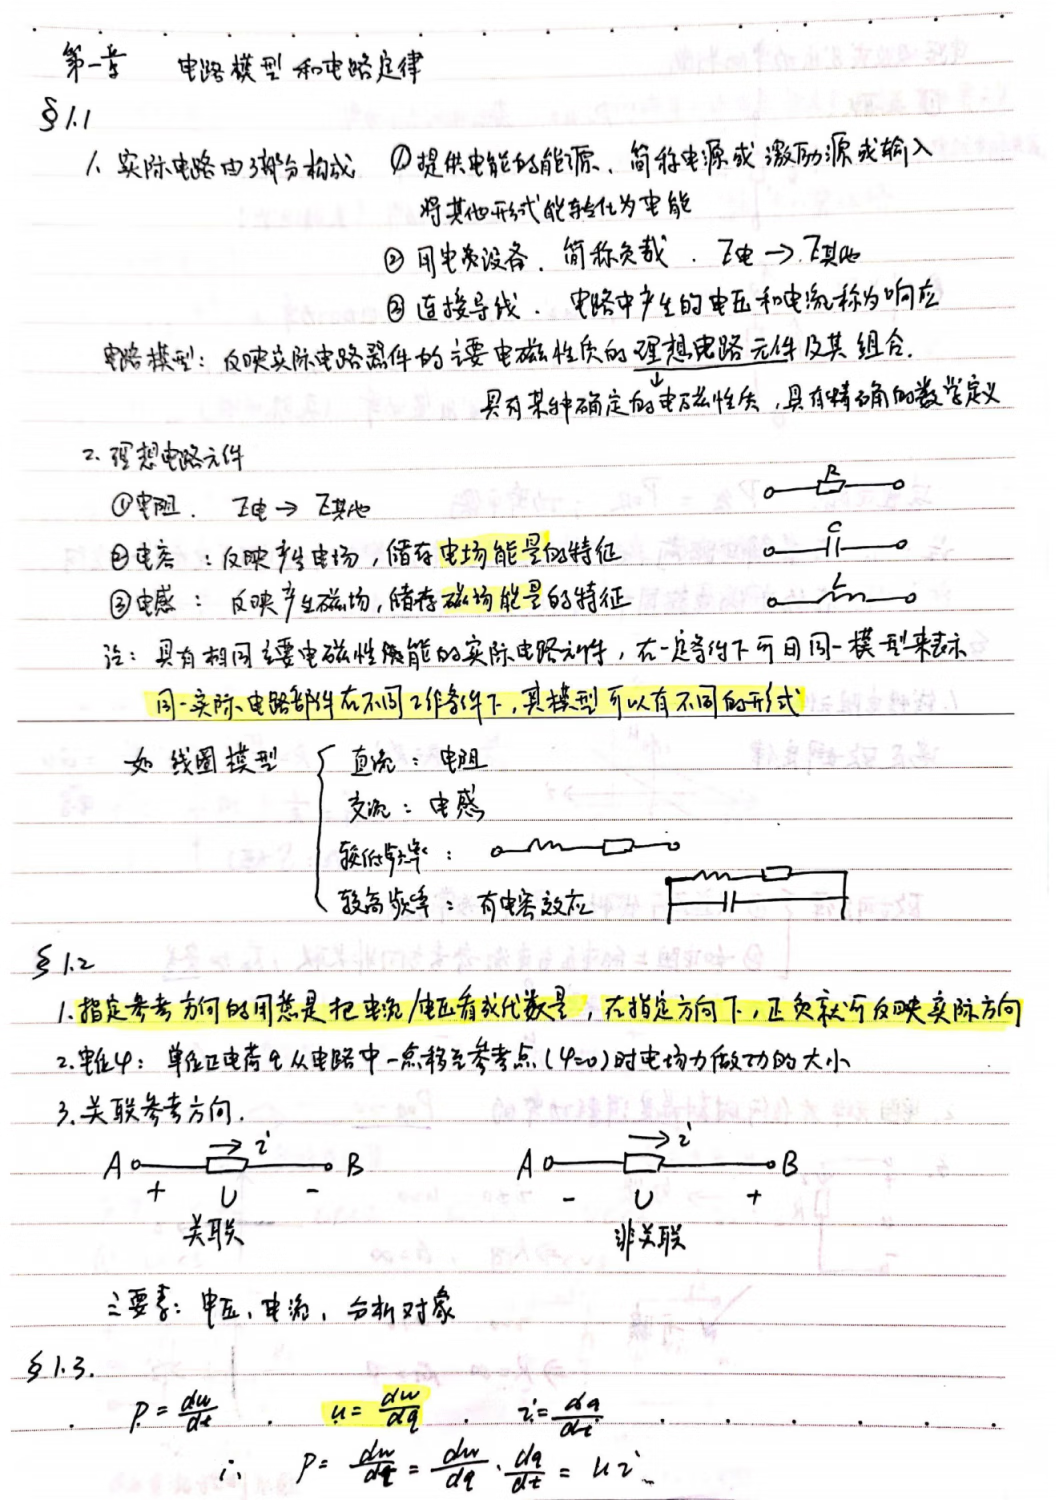 第一章 电路模型和电路定律
§1.1
1. 实际电路由3部分构成 ①提供电能的能源、简称电源或激励源或输入
将其他形式能转化为电能
② 用电类设备. 简称负载. E电→E其他
③ 连接导线. 电路中产生的电压和电流称为响应
电路模型: 反映实际电路器件的主要电磁性质的理想电路元件及其组合.
↓
具有某种确定的电磁性质,具有精确的数学定义
2. 理想电路元件
①电阻. E电→E其他 R
②电容: 反映产生电场,储存电场能量的特征 C
③电感: 反映产生磁场,储存磁场能量的特征 L
注: 具有相同主要电磁性能的实际电路元件,在一定条件下可用同一模型来表示
同一实际电路部件在不同工作条件下,其模型可以有不同的形式
如 线圈模型 直流: 电阻
交流: 电感
较低频率:
较高频率: 有电容效应
§1.2
1. 指定参考方向的用意是把电流/电压看成代数量,在指定方向下,正负就可反映实际方向
2. 电位φ: 单位正电荷q从电路中一点移至参考点(φ=0)时电场力做功的大小
3. 关联参考方向.
→ i → i
A B A B
+ U - - U +
关联 非关联
主要: 电压、电流, 分析对象
§1.3.
P = dw/dt u = dw/dq i = dq/dt
∴ P = dw/dt = dw/dq · dq/dt = ui